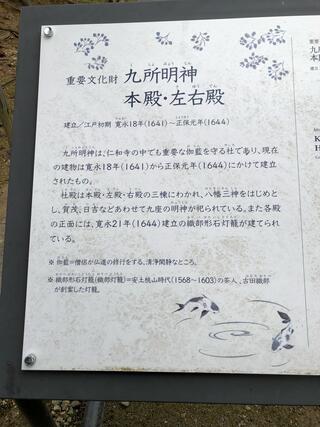 重要文化財 九所明神
本殿・左右殿
建立／江戸初期 寛永18年(1641)～正保元年(1644)
九所明神は、仁和寺の中でも重要な伽藍を守る社であり、現在
の建物は寛永18年(1641)から正保元年(1644)にかけて建立
されたもの。
社殿は本殿・左殿・右殿の三棟にわかれ、八幡三神をはじめと
し、賀茂、日吉などあわせて九座の明神が祀られている。また各殿
の正面には、寛永21年(1644)建立の織部形石灯籠が建てられ
ている。
※ 伽藍=僧侶が仏道の修行をする、清浄閑静なところ。
※ 織部形石灯籠(織部灯籠)=安土桃山時代(1568～1603)の茶人、古田織部
が創案した灯籠。